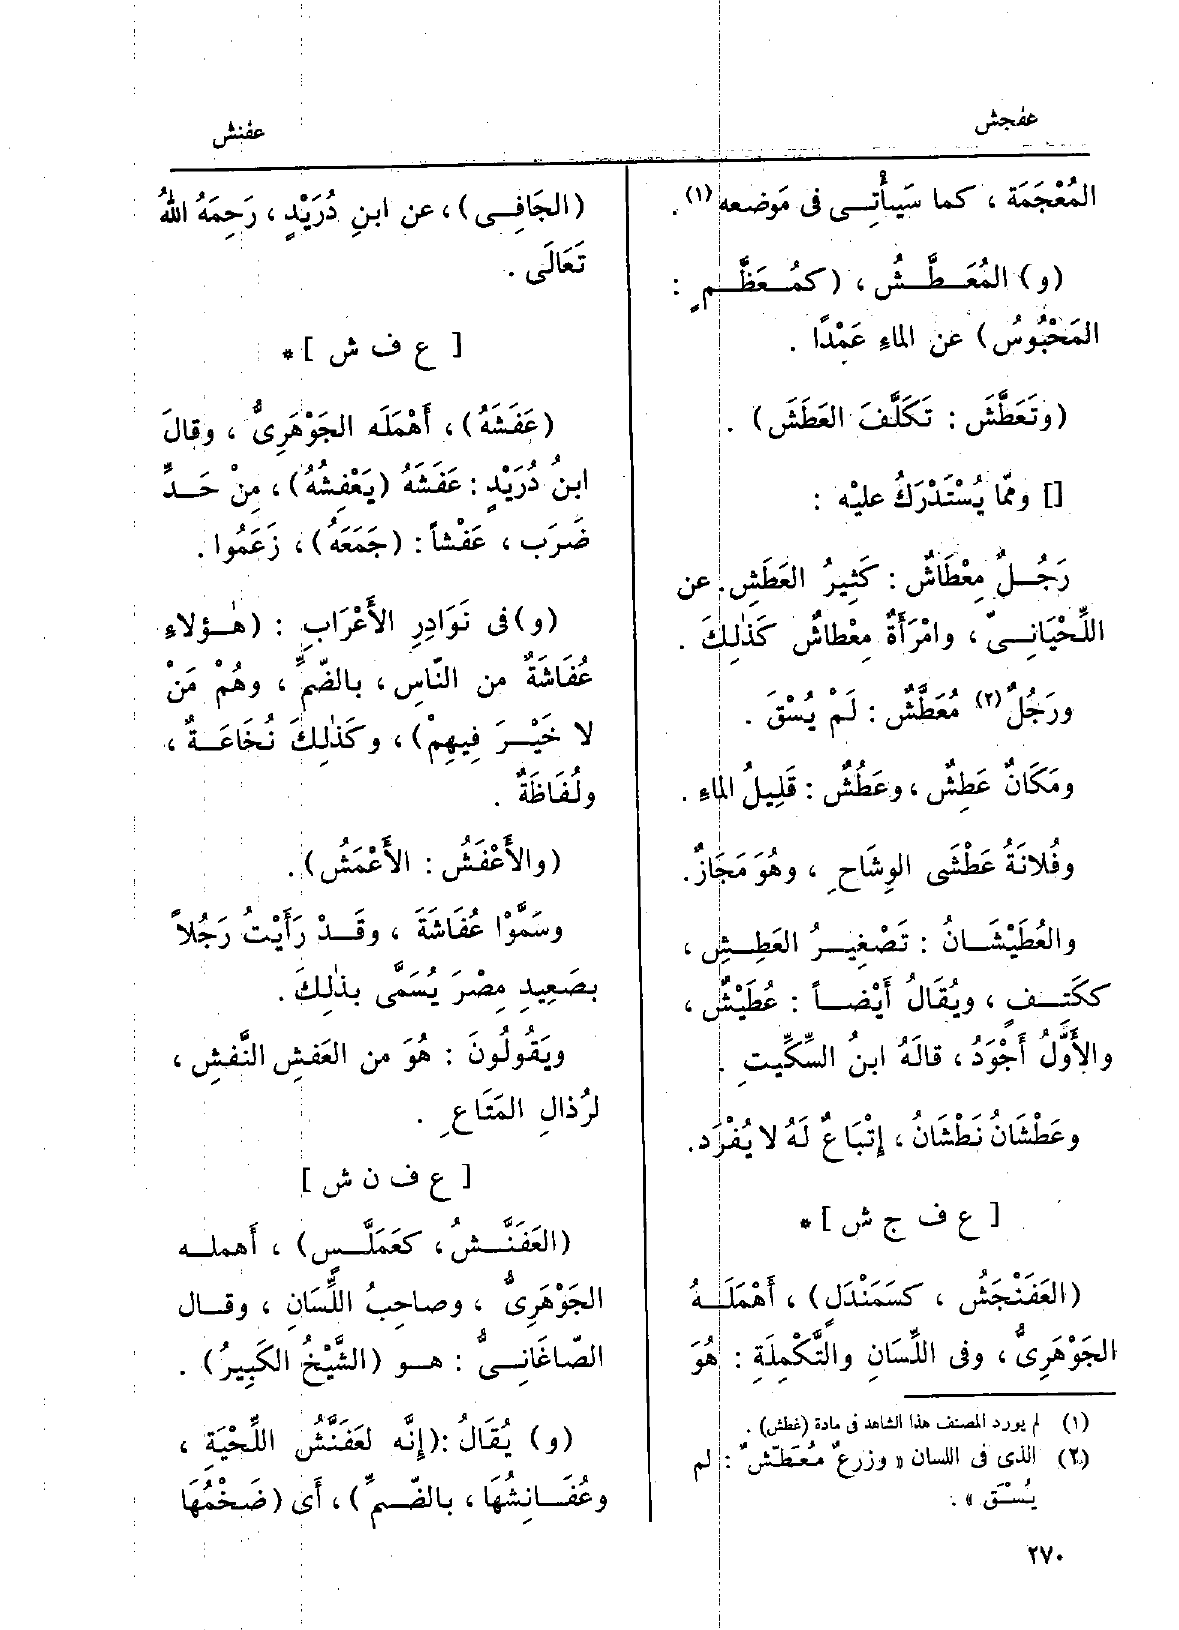 عفجش
عفنش
المُعْجَمَة ، كما سَيأْتِــى فى مَوضعه (١) .
(و) المُعَـطَّــشُ ، (كمُـعَظَّــمٍ :
المَحْبُوسُ) عن الماءِ عَمْدًا .
(وتَعَطَّشَ : تَكَلَّفَ العَطَشَ) .
[] وممّا يُسْتَدْرَكُ عليْه :
رَجُــلٌ مِعْطَاشٌ : كَثِيرُ العَطَشِ. عن
اللِّحْيَانِــىّ ، وامْرَأَةٌ مِعْطاشٌ كَذٰلِكَ .
ورَجُلٌ (٢) مُعَطَّشٌ : لَمْ يُسْقَ .
ومَكَانٌ عَطِشٌ ، وعَطُشٌ : قَلِيلُ الماءِ .
وفُلانَةُ عَطْشَى الوِشَاحِ ، وهُوَ مَجَازٌ.
والعُطَيْشَــانُ : تَصْغِيــرُ العَطِــشِ ،
ككَتِــفٍ ، ويُقَالُ أَيْضــاً : عُطَيْشٌ ،
والأَوَّلُ أَجْوَدُ ، قالَهُ ابنُ السِّكِّيتِ .
وعَطْشَانُ نَطْشَانُ ، إِتْبَاعٌ لَهُ لا يُفْرَد.
[ ع ف ج ش ] *
(العَفَنْجَشُ ، كسَمَنْدَلٍ) ، أَهْمَلَــهُ
الجَوْهَرِىُّ ، وفى اللِّسَانِ والتَّكْمِلَةِ : هُوَ
(١) لم يورد المصنف هذا الشاهد فى مادة (غطش) .
(٢) الذى فى اللسان « وزرعٌ مُعَطّشٌ : لم
يُسْق » .
٢٧٠
(الجَافِــى) ، عن ابنِ دُرَيْدٍ ، رَحِمَهُ اللهُ
تَعَالَى .
[ ع ف ش ] *
(عَفَشَهُ) ، أَهْمَلَه الجَوْهَرِىُّ ، وقالَ
ابنُ دُرَيْدٍ : عَفَشَهُ (يَعْفِشُهُ) ، مِنْ حَــدِّ
ضَرَب ، عَفْشاً : (جَمَعَهُ) ، زَعَمُوا .
(و) فى نَوَادِرِ الأَعْرَابِ : (هٰـؤلاءِ
عُفَاشَةٌ من النّاسِ ، بالضّمِّ ، وهُمْ مَنْ
لا خَيْــرَ فِيهِمْ) ، وكَذٰلِكَ نُخَاعَــةٌ ،
ولُفَاظَةٌ .
(والأَعْفَشُ : الأَعْمَشُ) .
وسَمَّوْا عُفَاشَةَ ، وقَــدْ رَأَيْتُ رَجُلاً
بصَعِيدِ مِصْرَ يُسَمَّى بذٰلِكَ .
ويَقُولُونَ : هُوَ من العَفشِ النَّفشِ ،
لرُذالِ المَتَاعِ .
[ ع ف ن ش ]
(العَفَنَّــشُ ، كعَمَلَّــسٍ) ، أَهملــه
الجَوْهَرِىُّ ، وصاحِبُ اللِّسَانِ ، وقــال
الصّاغَانِــىُّ : هــو (الشَّيْخُ الكَبِيرُ) .
(و) يُقَالُ : (إِنَّه لعَفَنَّشُ اللِّحْيَةِ ،
وعُفَــانِشُهَا ، بالضّــمِّ) ، أَى (ضَخْمُهَا